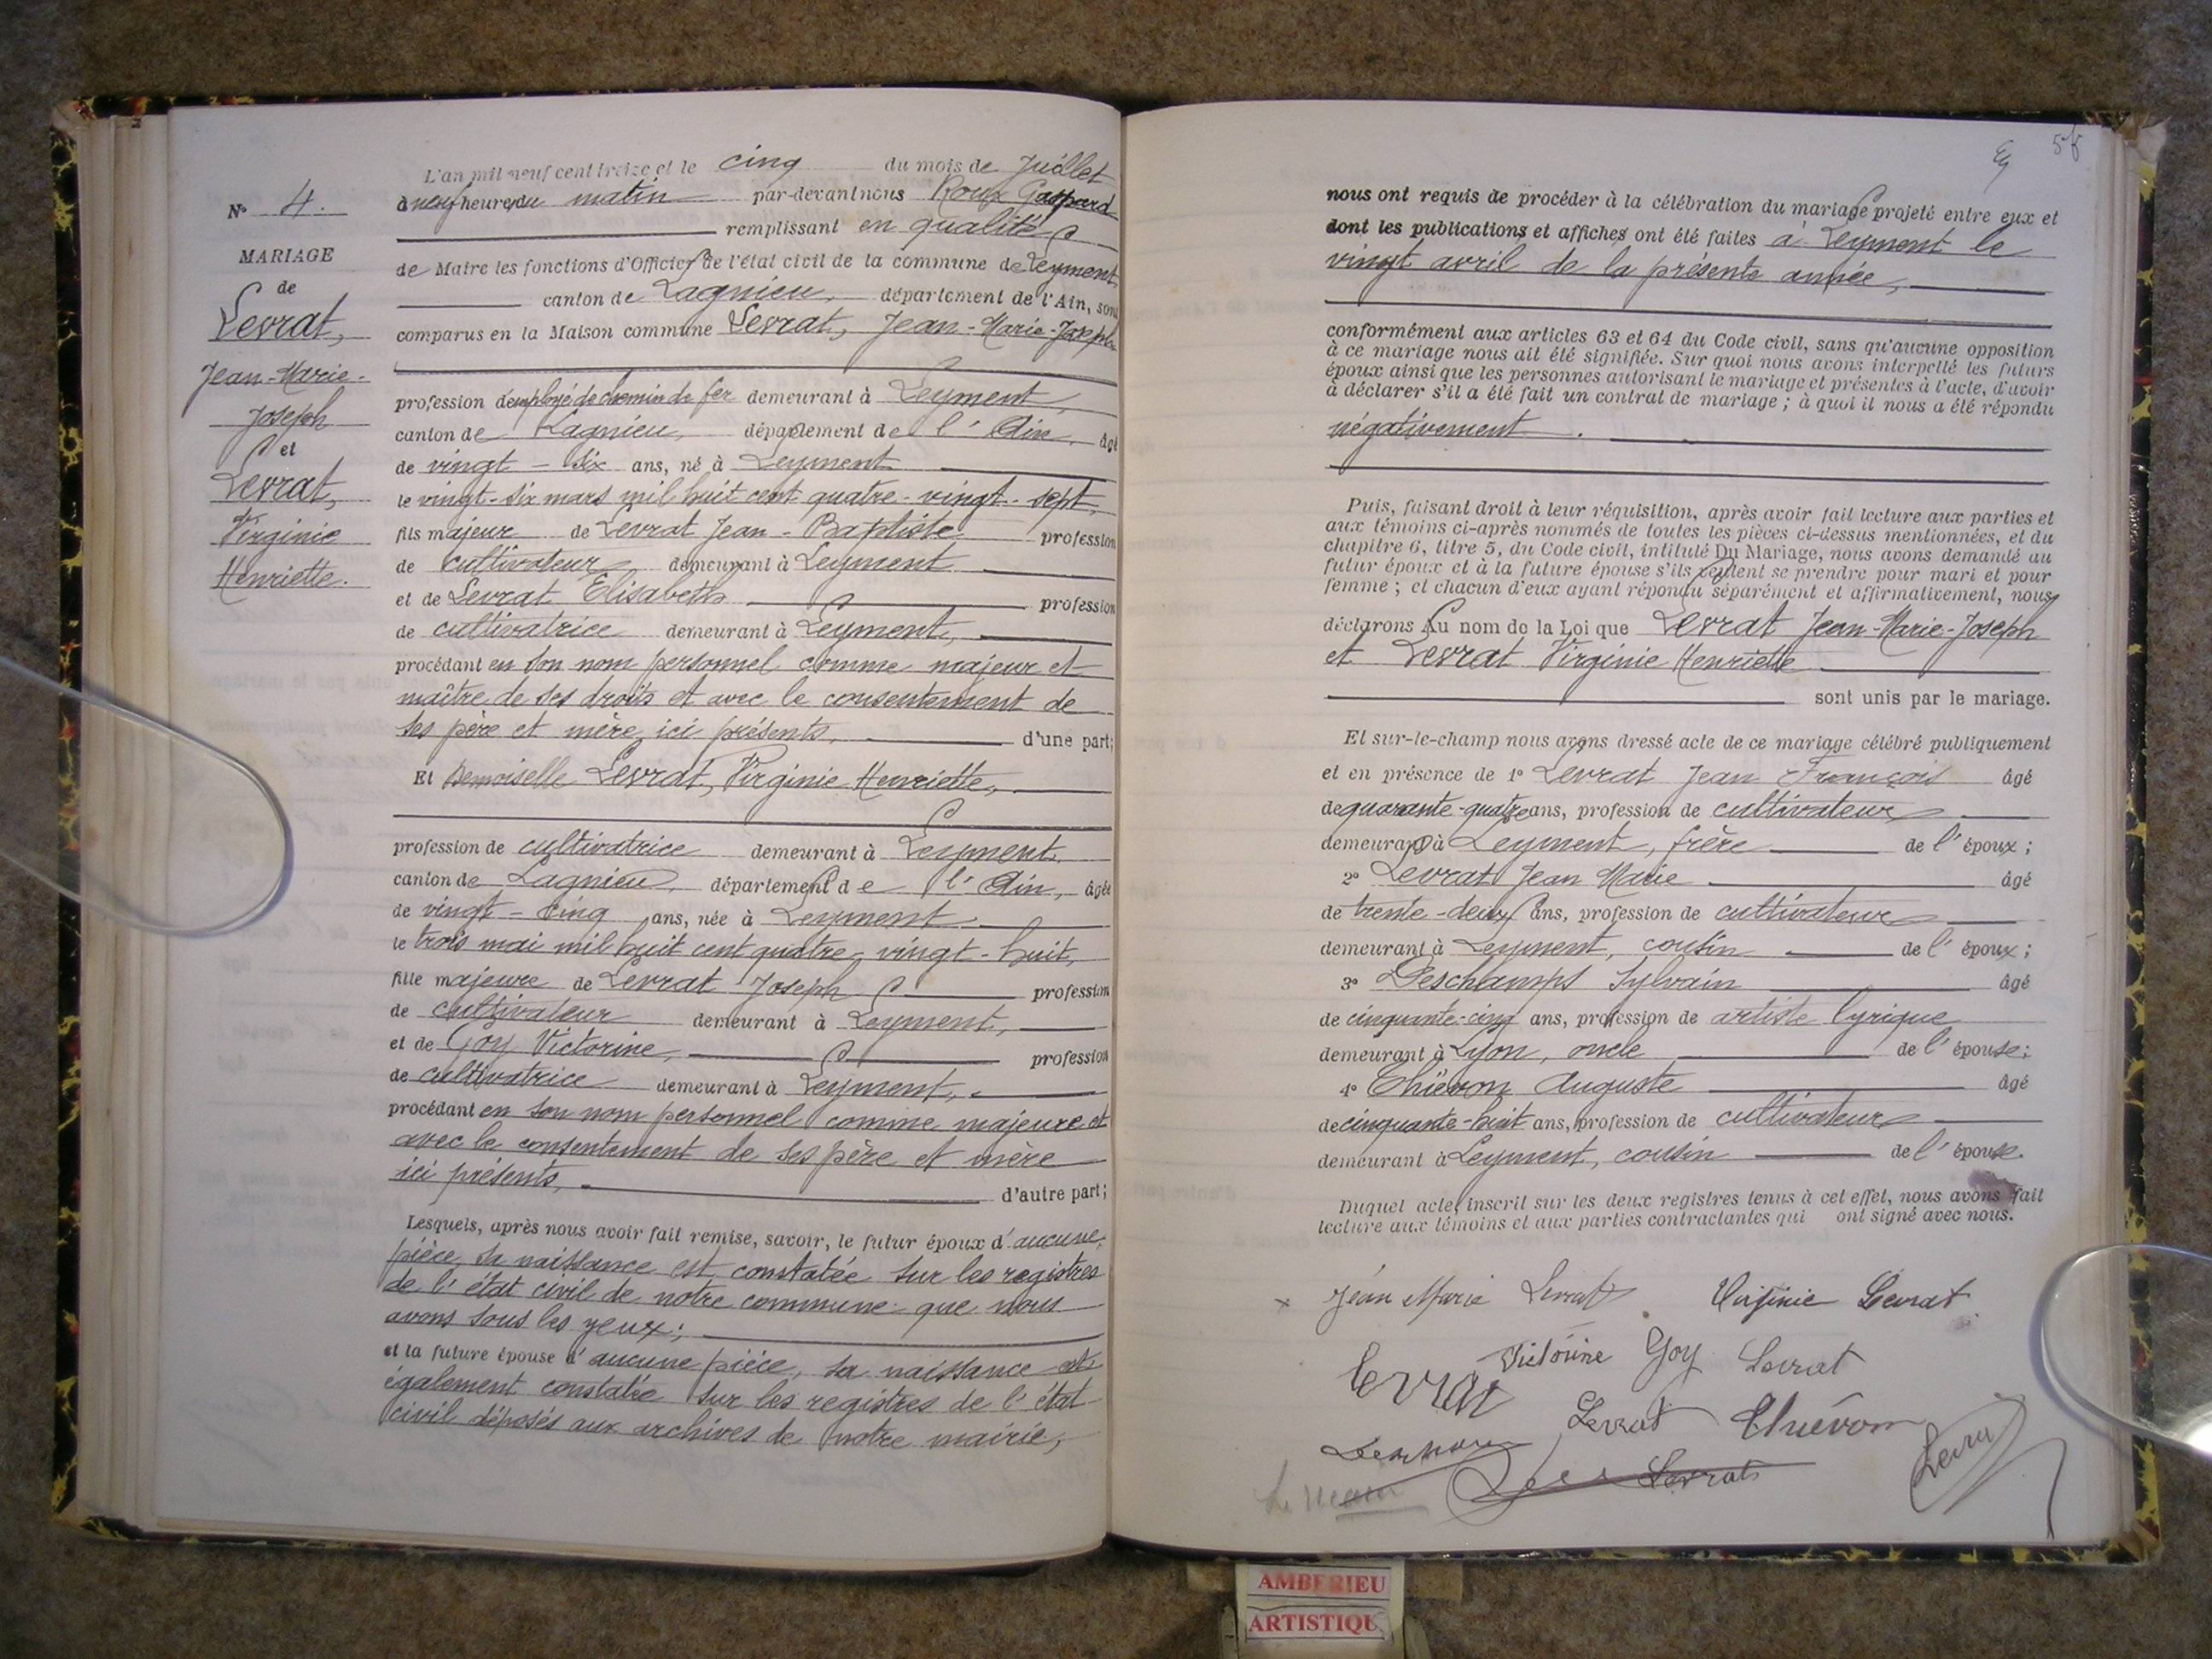 N° 4.
MARIAGE
de
Levrat,
Jean-Marie-
Joseph
et
Levrat,
Virginie
Henriette.
L'an mil neuf cent treize et le cinq du mois de Juillet
à neuf heures du matin par-devant nous Roux Gaspard
remplissant en qualité
de Maire les fonctions d'Officier de l'état civil de la commune de Leyment,
canton de Lagnieu, département de l'Ain, sont
comparus en la Maison commune Levrat, Jean-Marie-Joseph
profession d'employé de chemin de fer demeurant à Leyment,
canton de Lagnieu, département de l'Ain, âgé
de vingt-six ans, né à Leyment
le vingt-six mars mil huit cent quatre-vingt-sept,
fils majeur de Levrat Jean-Baptiste profession
de cultivateur demeurant à Leyment
et de Levrat Elisabeth profession
de cultivatrice demeurant à Leyment,
procédant en son nom personnel comme majeur et
maître de ses droits et avec le consentement de
ses père et mère, ici présents, d'une part;
Et Demoiselle Levrat, Virginie Henriette,
profession de cultivatrice demeurant à Leyment,
canton de Lagnieu, département de l'Ain, âgée
de vingt-cinq ans, née à Leyment
le trois mai mil huit cent quatre-vingt-huit,
fille majeure de Levrat Joseph profession
de cultivateur demeurant à Leyment,
et de Goy Victorine, profession
de cultivatrice demeurant à Leyment,
procédant en son nom personnel comme majeure et
avec le consentement de ses père et mère
ici présents, d'autre part;
Lesquels, après nous avoir fait remise, savoir, le futur époux d'aucune
pièce, sa naissance est constatée sur les registres
de l'état civil de notre commune que nous
avons sous les yeux;
et la future épouse d'aucune pièce, sa naissance est
également constatée sur les registres de l'état
civil déposés aux archives de notre mairie,
nous ont requis de procéder à la célébration du mariage projeté entre eux et
dont les publications et affiches ont été faites à Leyment le
vingt avril de la présente année,
conformément aux articles 63 et 64 du Code civil, sans qu'aucune opposition
à ce mariage nous ait été signifiée. Sur quoi nous avons interpellé les futurs
époux ainsi que les personnes autorisant le mariage et présentes à l'acte, d'avoir
à déclarer s'il a été fait un contrat de mariage; à quoi il nous a été répondu
négativement.
Puis, faisant droit à leur réquisition, après avoir fait lecture aux parties et
aux témoins ci-après nommés de toutes les pièces ci-dessus mentionnées, et du
chapitre 6, titre 5, du Code civil, intitulé Du Mariage, nous avons demandé au
futur époux et à la future épouse s'ils veulent se prendre pour mari et pour
femme; et chacun d'eux ayant répondu séparément et affirmativement, nous
déclarons Au nom de la Loi que Levrat Jean-Marie-Joseph
et Levrat Virginie Henriette
sont unis par le mariage.
Et sur-le-champ nous avons dressé acte de ce mariage célébré publiquement
et en présence de 1° Levrat Jean François âgé
de quarante-quatre ans, profession de cultivateur
demeurant à Leyment, frère de l'époux;
2° Levrat Jean Marie âgé
de trente-deux ans, profession de cultivateur
demeurant à Leyment, cousin de l'époux;
3° Deschamps Sylvain âgé
de cinquante-cinq ans, profession de artiste lyrique
demeurant à Lyon, oncle de l'épouse;
4° Thiévon Auguste âgé
de cinquante-huit ans, profession de cultivateur
demeurant à Leyment, cousin de l'épouse.
Duquel acte, inscrit sur les deux registres tenus à cet effet, nous avons fait
lecture aux témoins et aux parties contractantes qui ont signé avec nous.
Jean Marie Levrat Virginie Levrat
Victorine Goy Levrat
Levrat
Levrat Thiévon
Levrat
AMBERIEU
ARTISTIQU